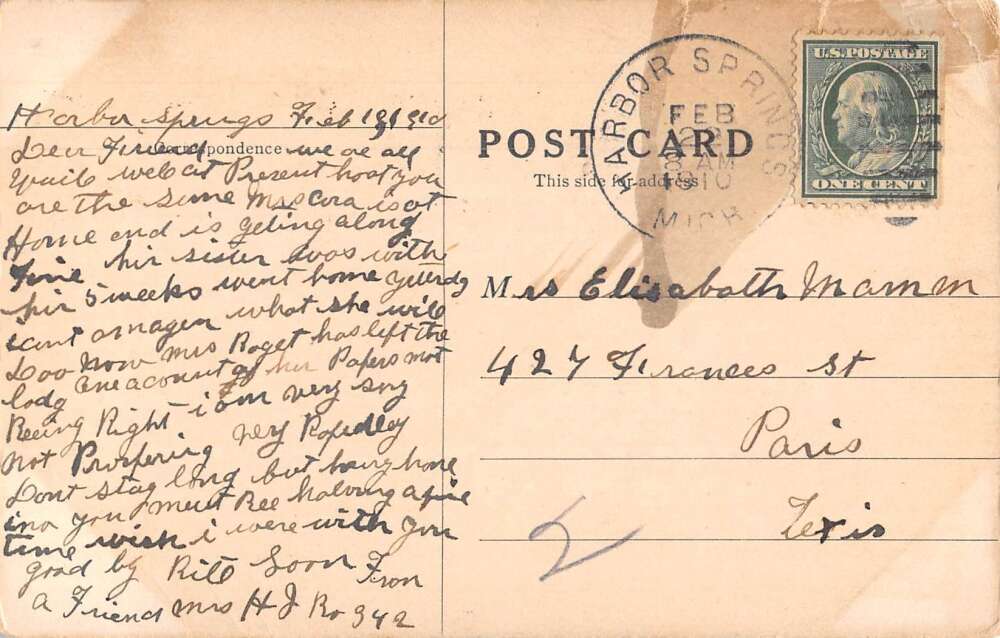 Harbor Springs Feb 19 1910
Correspondence
Dear Friend we are all
quite well at Present hoat you
are the same Mrs Cora is at
Home and is geting along
fine hir sister was with
hir 5 weeks went home yesterdy
cant amagen what she will
Doo now Mrs Roget has left the
lodg one acount of her Papers not
Beeing Right i am very sory
not Prospering very Rapedley
Dont stay long but hury home
ino you must Bee halving a fine
time wish i were with you
good by Rite Soon From
a Friend Mrs H J Ro 342
POST CARD
This side for address
HARBOR SPRINGS
FEB
AM
1910
MICH.
U.S. POSTAGE
ONE CENT
Mrs Elisabath Mamm
427 Frances st
Paris
Texis
2